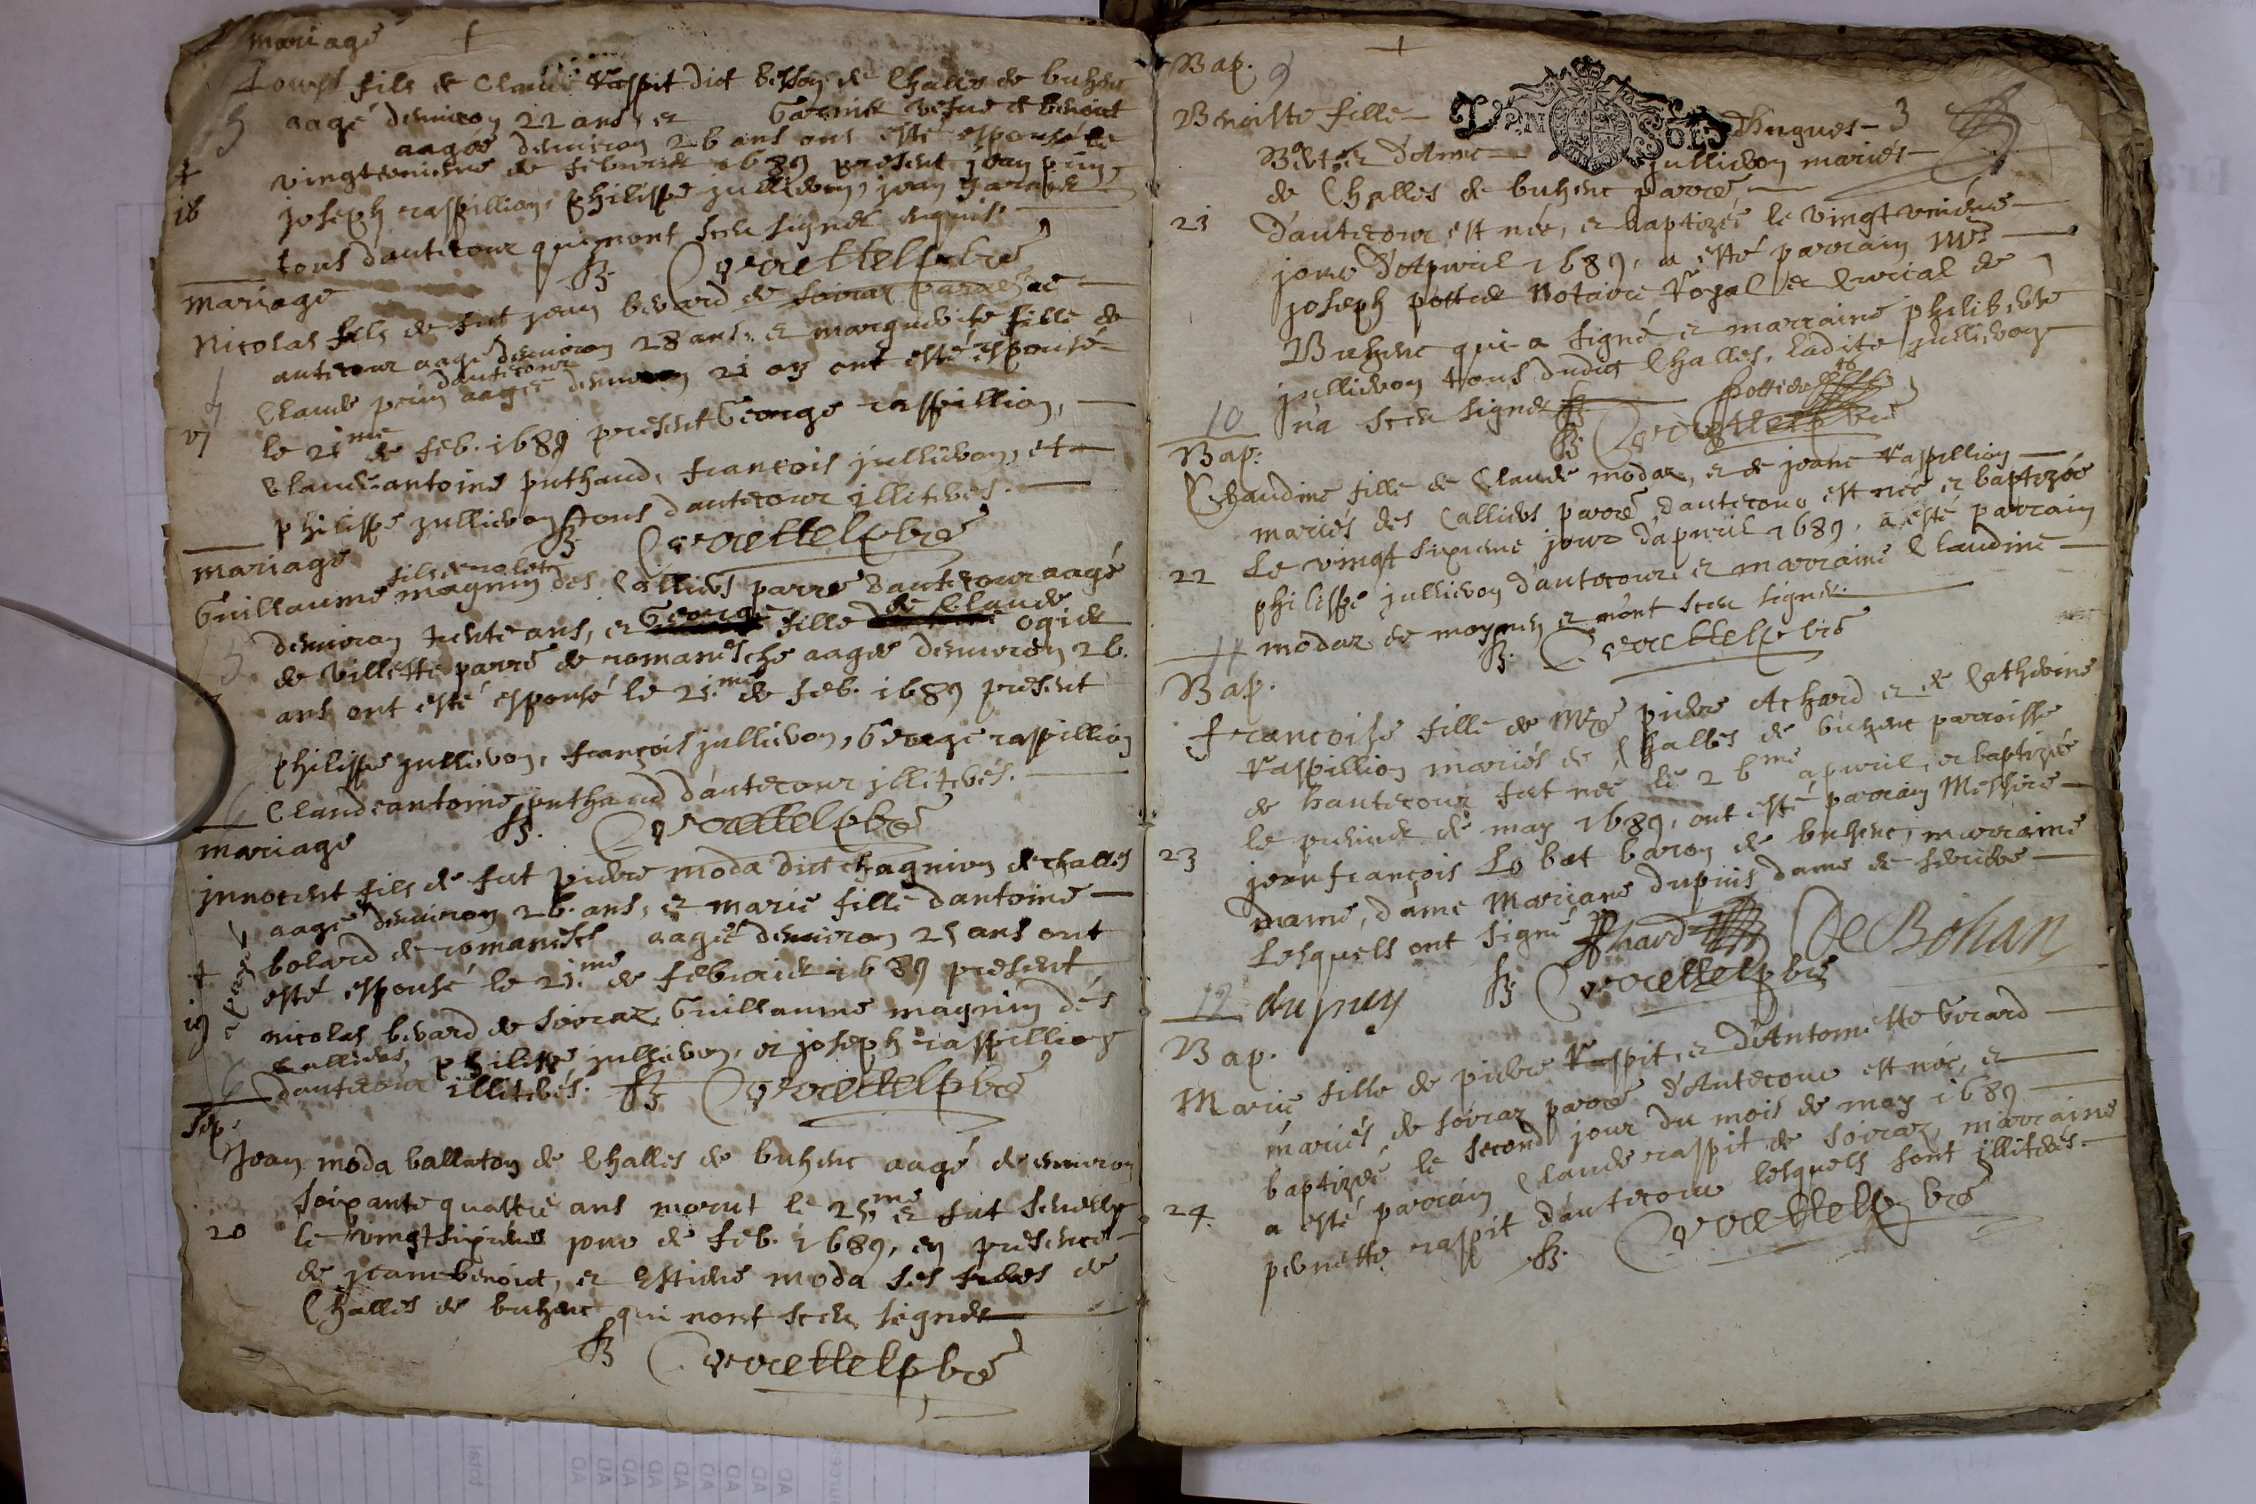 mariage
Louys fils de Claude Raspit dict besson de Challes de buhenc
aagé denviron 22 ans, et Garnier vefue de benoict
aagée denviron 26 ans ont esté espousé le
vingtuniesme de febvrier 1689 present jean
16 joseph raspillion, philippe jullievon, jean
tous dautecour qui nont sceu signer enquis.
mariage
Nicolas fils de fut jean bevard de soiraz parre
autecour aagé denviron 28 ans, et marguerite fille de
dautecour
Claude aagée denviron 21 an ont esté espousé
17 le 21me de feb. 1689 present George raspillion,
Claudeantoine puthaud, francois jullievon, et
philippe jullievon tous dautecour illiterés.
mariage
fils de
Guillaume magnin des Calliers parre dautecour aagé
denviron trente ans, et George fille de Claude ogier
de Villette parre de romanesche aagée denviron 26.
ans ont esté espousé le 21.me de feb. 1689 present
philippe jullievon, françois jullievon, George raspillion
Claudeantoine puthaud dautecour illiterés.
mariage
jnnocent fils de fut pierre moda dict chagnien de challes
aagé denviron 26. ans, et marie fille dantoine
bolard de romanesche aagée denviron 25 ans ont
esté espousé le 21.me de febvrier 1689 present
19 nicolas bevard de soiraz, Guillaume magnin des
Calliers, philippe jullievon, et joseph raspillion
dautecour illiterés.
Sep.
Jean moda ballaton de Challes de buhenc aagé denviron
soixante quattre ans morut le 25me et fut sevelly
20 le vingtsixieme jour de feb. 1689, en presence
de jeam benoict, et Estiene moda ses freres de
Challes de buhenc qui nont sceu signer
Bap. 9
Benoiste fille Dhugues 3
et d'Anne jullievon mariés
de Challes de buhenc parre
21 d'autecour est née, et baptizée le vingtunieme
jour d'Apvril 1689, a esté parrain Mre
joseph pottier Notaire Royal et Curial de
Buhenc qui a signé et marraine philiberte
jullievon tous dudict Challes, ladite jullievon
n'a sceu signer pottier
10
Bap.
Claudine fille de Claude modaz, et de jeane raspillion
mariés des Calliers parre dautecour est née et baptizée
Le vingt sixieme jour d'apvril 1689, a esté parrain
22 philippe jullievon d'autecour et marraine Claudine
modaz de moymen et n'ont sceu signer.
11
Bap.
francoise fille de Mre pierre Achard et de Catherine
Raspillion mariés de Challes de buhenc parroisse
de hautecour fut née le 26me apvril, et baptizée
le premier de may 1689, ont esté parrain Messire
23 jean françois Lo bat baron de buhenc, marraine
dame, dame Mariane dupuis dame de
Lesquels ont signé Achard De Bohan
12 dupuy
Bap.
Marie fille de pierre Raspit, et d'Antoinette Gerard
mariés de soiraz parre d'Autecour est née, et
baptizée le second jour du mois de may 1689
a esté parrain Claude raspit de soiraz, marraine
24. pernette raspit d'autecour lesquels sont illiterés.